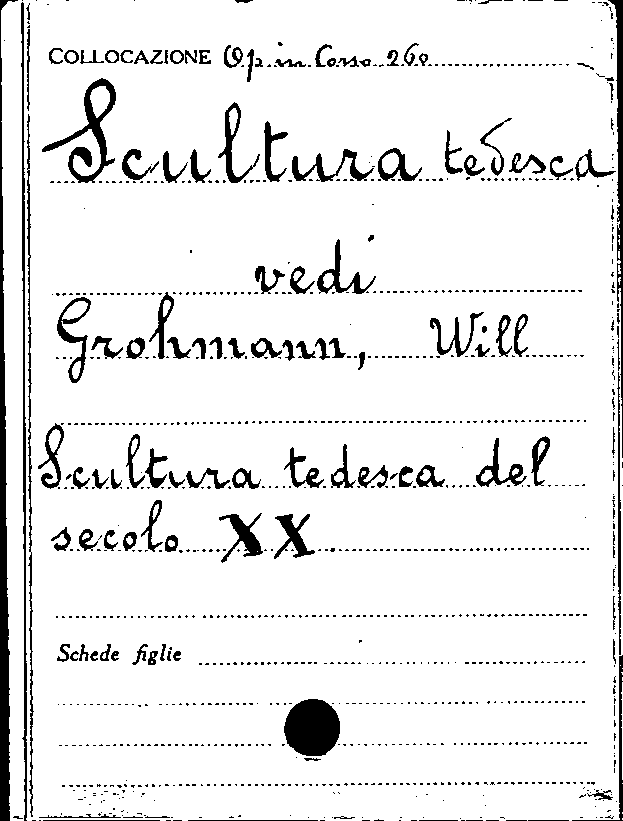 COLLOCAZIONE Op. in Corso 260
Scultura tedesca
vedi
Grohmann, Will
Scultura tedesca del
secolo XX
Schede figlie